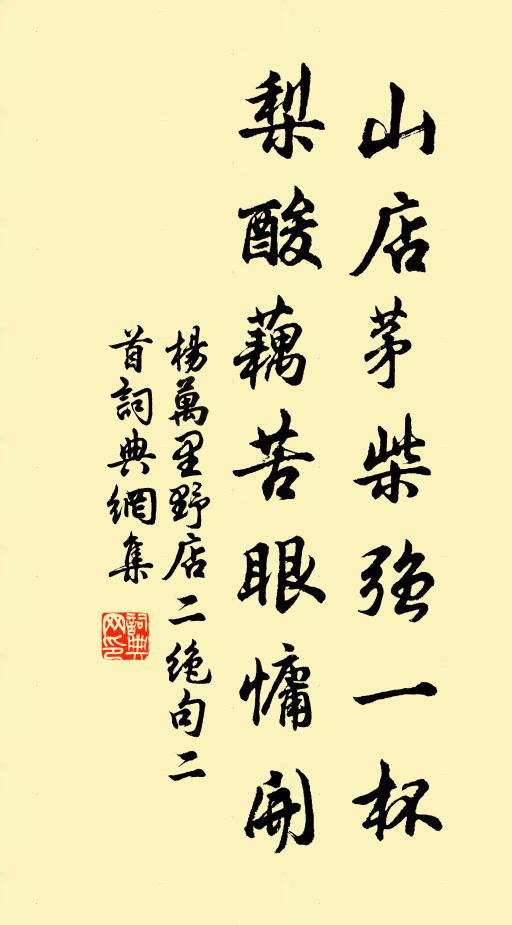 山店茅柴強一杯
梨酸藕苦眼慵開
楊萬里野店二绝句二
首詞典網集
詞典
网印